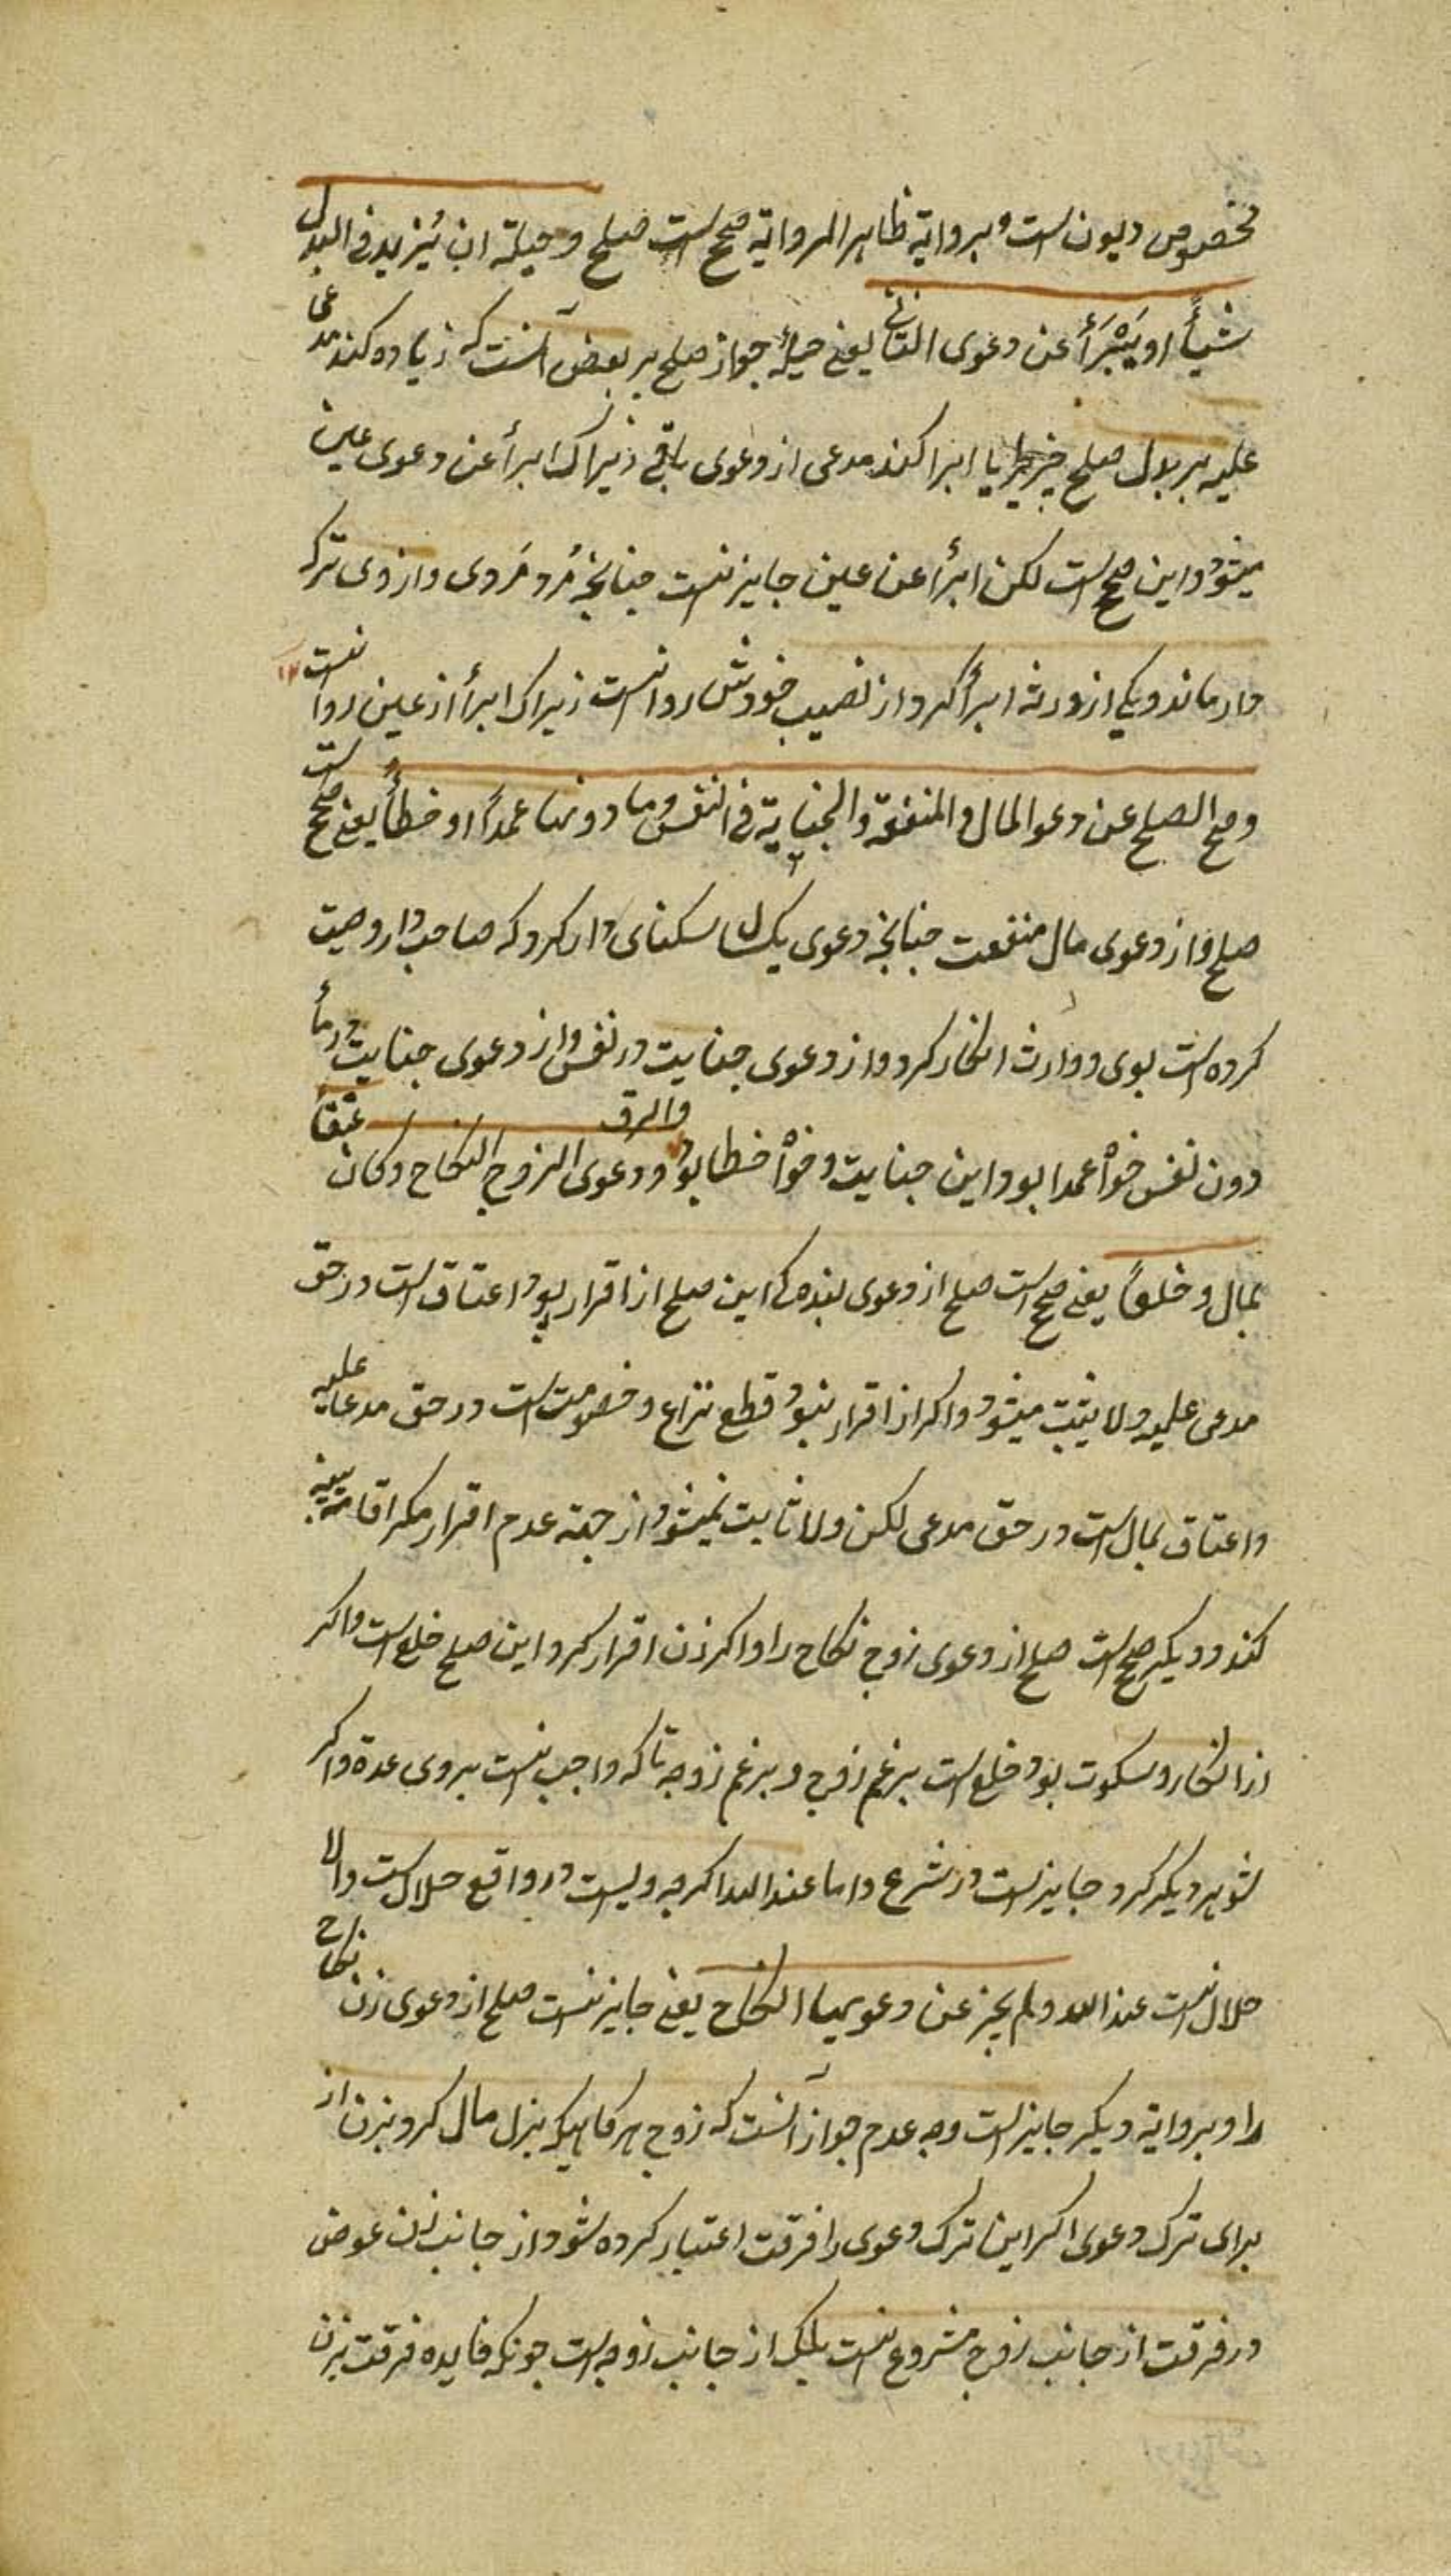 مخصوص دیون است و بروایة ظاهر الروایة صحیح است صلح و حیلته ان یزید فی البدل
شیأً او یَبْرَأُ عن دعوی الباقی یعنی حیلۀ جواز صلح بر بعض آنست که زیاده کند مدعی
علیه بر بدل صلح چیزیرا یا ابرا کند مدعی از دعوی باقی زیراک ابرأ عن دعوی عین
میشود و این صحیح است لکن ابرأ عن عین جایز نیست چنانچه مُرد مَردی و از وی ترکه
دار ماند و یکی از ورثه ابرأ کرد از نصیب خودش روا نیست زیراک ابرأ از عین روا نیست
وصح الصلح عن دعوی المال والمنفعة والجنایة فی النفس وما دونها عمداً او خطأً یعنی صحیح است
صلح و از دعوی مال منفعت چنانچه دعوی یک سال سکنای دار کرد که صاحب دار وصیت
کرده است بوی و وارث انکار کرد و از دعوی جنایت در نفس و از دعوی جنایت در ما
دون نفس خواه عمدا بود این جنایت و خواه خطا بود والرق ودعوی الزوج النکاح وکان عتقا
بمال وخلعاً یعنی صحیح است صلح از دعوی بنده ک این صلح از اقرار بود اعتاق است در حق
مدعی علیه ولا یثبت میشود و اکر از اقرار نبود قطع نزاع و خصومت است در حق مدعا علیه
و اعتاق بمال است در حق مدعی لکن ولا ثابت نمیشود از جهة عدم اقرار مکر اقامة بینه
کند و دیکر صحیح است صلح از دعوی زوج نکاح را و اکر زن اقرار کرد این صلح خلع است و اکر
از انکار و سکوت بود خلع است بزعم زوج و بزعم زوجه تا که واجب نیست بروی عدة و اکر
شوهر دیکر کرد جایز است در شرع و اما عند الله اکر چه ویست در واقع حلال است و الا
حلال نیست عند الله ولم یجز عن دعویها النکاح یعنی جایز نیست صلح از دعوی زن نکاح
را و بروایة دیکر جایز است وجه عدم جواز آنست که زوج هر کاهیکه بذل مال کرد بزن از
برای ترک دعوی اکر این ترک دعوی را فرقت اعتبار کرده شود از جانب زن عوض
در فرقت از جانب زوج مشروع نیست بلیک از جانب زوجه است چونکه فایده فرقت بزن